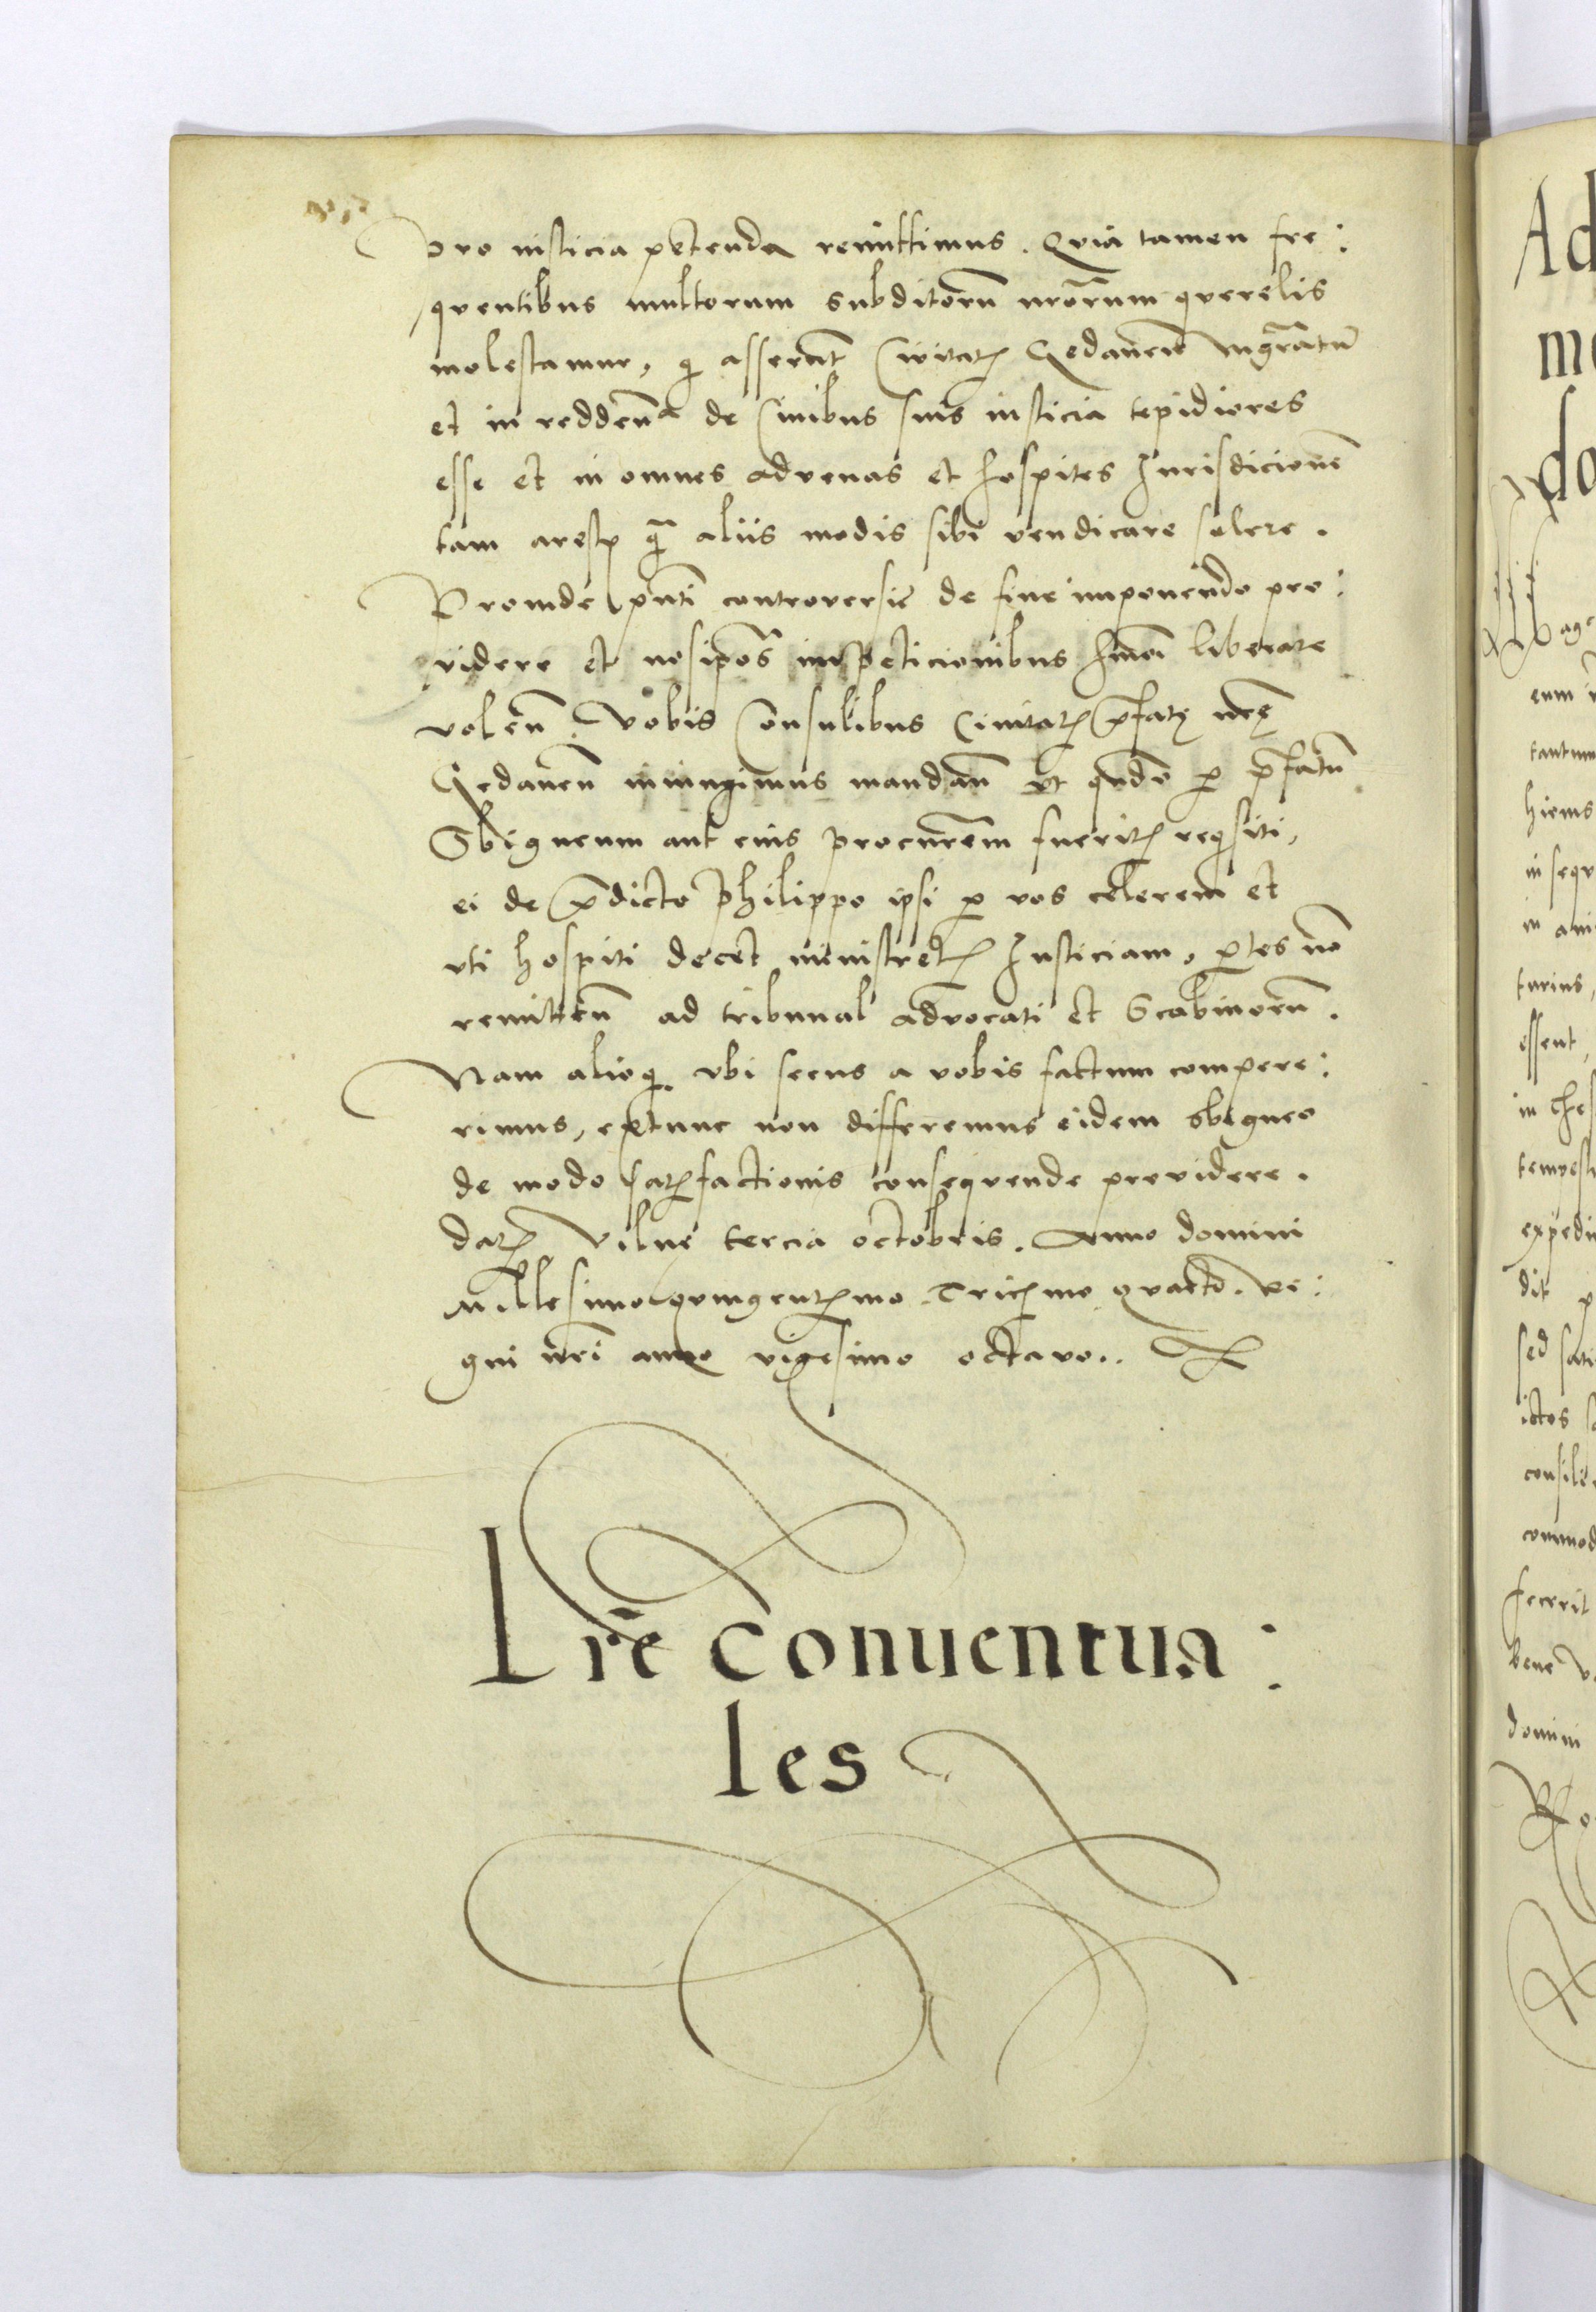 Pro iusticia petenda remittimus. Quia tamen fre:
quentibus multorum subditorū nr̄orum querelis
molestamur, qͥ asserūt Civitatꝭ Gedaneñ mgr̄atū
et in reddenᵃ de Civibus suis iusticia tepidiores
esse et in omnes advenas et hospites Jurisdicionē
tam arestꝭ qͣ aliis modis sibi vendicare solere.
Proinde pn̄ti controversie de fine imponendo pro:
videre et nosipōs impeticionibus hmōi liberare
volen̄ vobis Consulibus Civitatꝭ p̄fatę nrę
Gedanen̄ iniungimus mandan̄ ut qn̄do ꝑ p̄fatū
Sbigneum aut eius procur̄em fueritꝭ reqͥsiti,
ei de p̄dicto Philippo ipsi ꝑ vos celerem et
uti hospiti decet ministretꝭ Justiciam, ꝑtes nō
remitten̄ ad tribunal advocati et Scabinorū.
Nam alioqͥ. ubi secus a vobis factum compere:
rimus, extunc non differemus eidem Sbigneo
de modo satꝭfactionis consequende providere.
Datꝭ Vilne tercia octobris. Anno domini
Millesimo quingentꝭmo Tricꝭmo quarto. Re:
gni nr̄i anno vigesimo octavo..
Lr̄e conuentua:
les
Ad
mo
do
Mage
eum i
tantum
hiems
in sequ
in ani
turius,
essent,
in Thes
tempest
expedi
dit p
sed sati
ictos
consili
commod
fecerit
bene v
domini